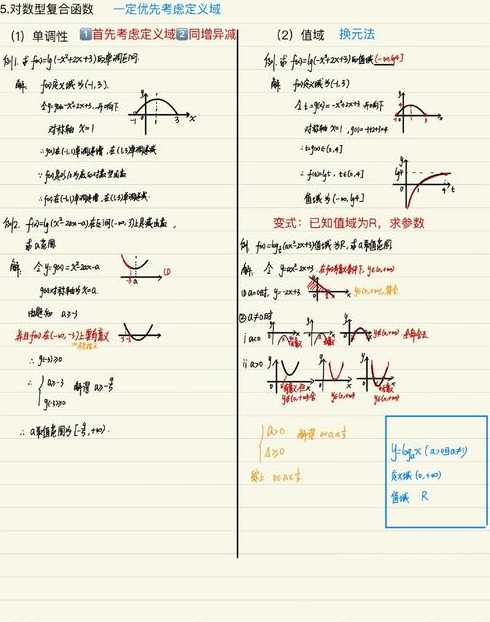 5.对数型复合函数 一定优先考虑定义域
(1) 单调性 1首先考虑定义域2同增异减
例1. 求 f(x)=lg(-x²+2x+3)的单调区间
解: f(x)定义域为(-1,3).
令y=g(x)=-x²+2x+3, 开口向下
对称轴 x=1
∴g(x)在(-1,1)单调递增, 在(1,3)单调递减
∴f(x)在(-1,1)单调递增, 在(1,3)单调递减.
例2. f(x)=lg(x²-2ax-a)在区间(-∞,-3)上是减函数,
求a范围
解: 令y=g(x)=x²-2ax-a
g(x)对称轴为x=a.
由题知 a≥-3
并且f(x)在(-∞,-3)上要有意义
∴ g(-3)≥0
∴ { a≥-3
g(-3)≥0
解得 a≥-9/5
∴ a取值范围为[-9/5,+∞).
(2) 值域 换元法
例1. 求 f(x)=lg(-x²+2x+3)的值域 (-∞,lg4]
解: f(x)定义域为(-1,3)
令t=g(x)=-x²+2x+3 开口向下
对称轴为x=1, g(1)=-1+2+3=4
∴t=g(x)∈(0,4]
∴ f(x)=lgt, t∈(0,4]
值域为(-∞,lg4]
变式：已知值域为R，求参数
例 f(x)=log₂(ax²-2x+3)值域为R, 求a取值范围
解: 令 y=ax²-2x+3
①a=0时, y=-2x+3
y∈(0,+∞), 符合
②a≠0时
i a<0
ii a>0
{ a>0
Δ≥0
解得 0<a≤1/3
综上 0≤a≤1/3
y=logₐx (a>0且a≠1)
定义域 (0,+∞)
值域 R